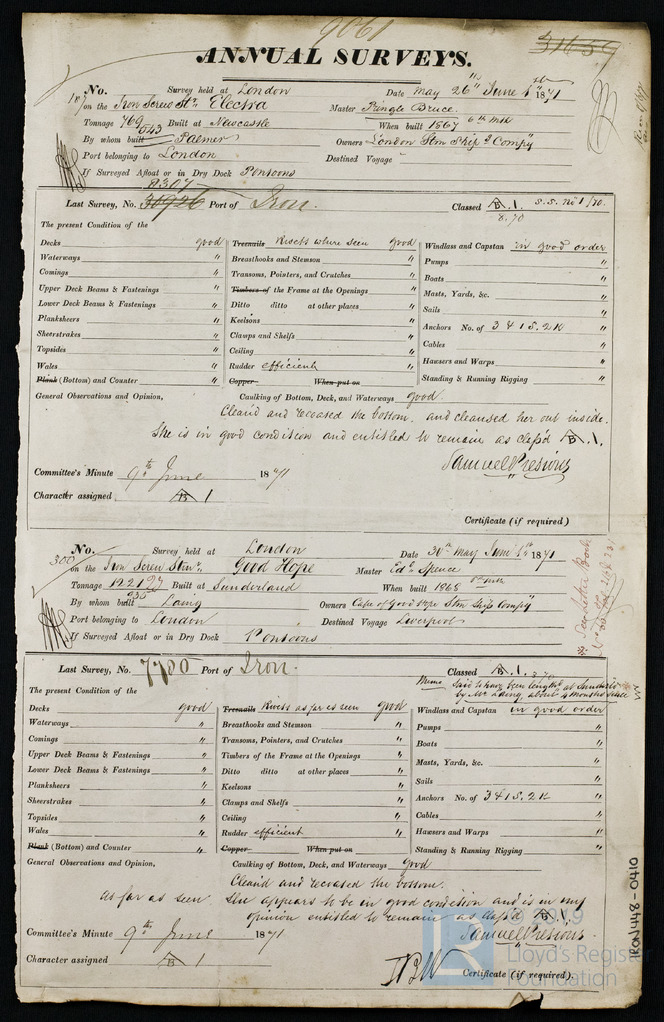 9061
31659
ANNUAL SURVEYS.
No. Survey held at London Date May 26th June 1st 1871
on the Iron Screw Str. Electra Master Pringle Bruce.
Tonnage 769 543 Built at Newcastle When built 1867 6th Mth
By whom built Palmer Owners London Stm Ship Compy
Port belonging to London Destined Voyage
If Surveyed Afloat or in Dry Dock Pontoons
8307
Last Survey, No. 30926 Port of Iron. Classed A 1. S.S. No 1/70.
8.70
The present Condition of the
Decks good Treenails Rivets where seen good Windlass and Capstan in good order
Waterways " Breasthooks and Stemson " Pumps "
Comings " Transoms, Pointers, and Crutches " Boats "
Upper Deck Beams & Fastenings " Timbers of the Frame at the Openings " Masts, Yards, &c. "
Lower Deck Beams & Fastenings " Ditto ditto at other places " Sails "
Planksheers " Keelsons " Anchors No. of 3 4 1 S. 2 K "
Sheerstrakes " Clamps and Shelfs " Cables "
Topsides " Ceiling " Hawsers and Warps "
Wales " Rudder efficient " Standing & Running Rigging "
Plank (Bottom) and Counter " Copper When put on
General Observations and Opinion, Caulking of Bottom, Deck, and Waterways good
Clean'd and recoated the bottom, and cleansed her out inside.
She is in good condition and entitled to remain as class'd A 1.
Samuel Presious
Committee's Minute 9th June 1871
Character assigned A 1
Certificate (if required)
No. Survey held at London Date 30th May June 1st 1871
300 on the Iron Screw Stmr. Good Hope Master Edd. Spence
Tonnage 1221 935 Built at Sunderland When built 1868
By whom built Laing Owners Cape of Good Hope Stm Ship Compy
Port belonging to London Destined Voyage Liverpool
If Surveyed Afloat or in Dry Dock Pontoons
Last Survey, No. 7780 Port of Iron. Classed A 1.
Memo Said to have been length'd at Sunderld
by Mr Laing, about 4 months since
The present Condition of the
Decks good Treenails Rivets as far as seen good Windlass and Capstan in good order
Waterways " Breasthooks and Stemson " Pumps "
Comings " Transoms, Pointers, and Crutches " Boats "
Upper Deck Beams & Fastenings " Timbers of the Frame at the Openings " Masts, Yards, &c. "
Lower Deck Beams & Fastenings " Ditto ditto at other places " Sails "
Planksheers " Keelsons " Anchors No. of 3 4 1 S. 2 K "
Sheerstrakes " Clamps and Shelfs " Cables "
Topsides " Ceiling " Hawsers and Warps "
Wales " Rudder efficient " Standing & Running Rigging "
Plank (Bottom) and Counter " Copper When put on
General Observations and Opinion, Caulking of Bottom, Deck, and Waterways Good
Clean'd and recoated the bottom.
As far as seen. She appears to be in good condition and is in my
opinion entitled to remain as class'd A 1.
Samuel Presious
Committee's Minute 9th June 1871
Character assigned A 1
Certificate (if required).
RON448-0410
© 2019
Lloyd's Register
Foundation